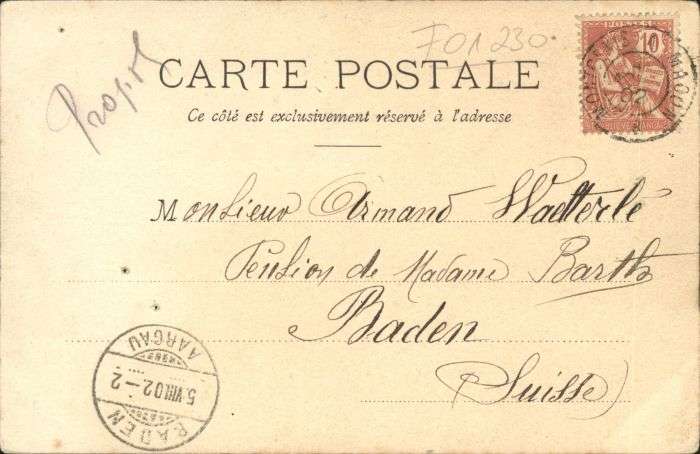 F01 230
POSTES
10
CARTE POSTALE
Ce côté est exclusivement réservé à l'adresse
Monsieur Armand Waelterlé
Pension de Madame Barth
Baden
(Suisse)
BADEN
5.VIII.02–2
AARGAU